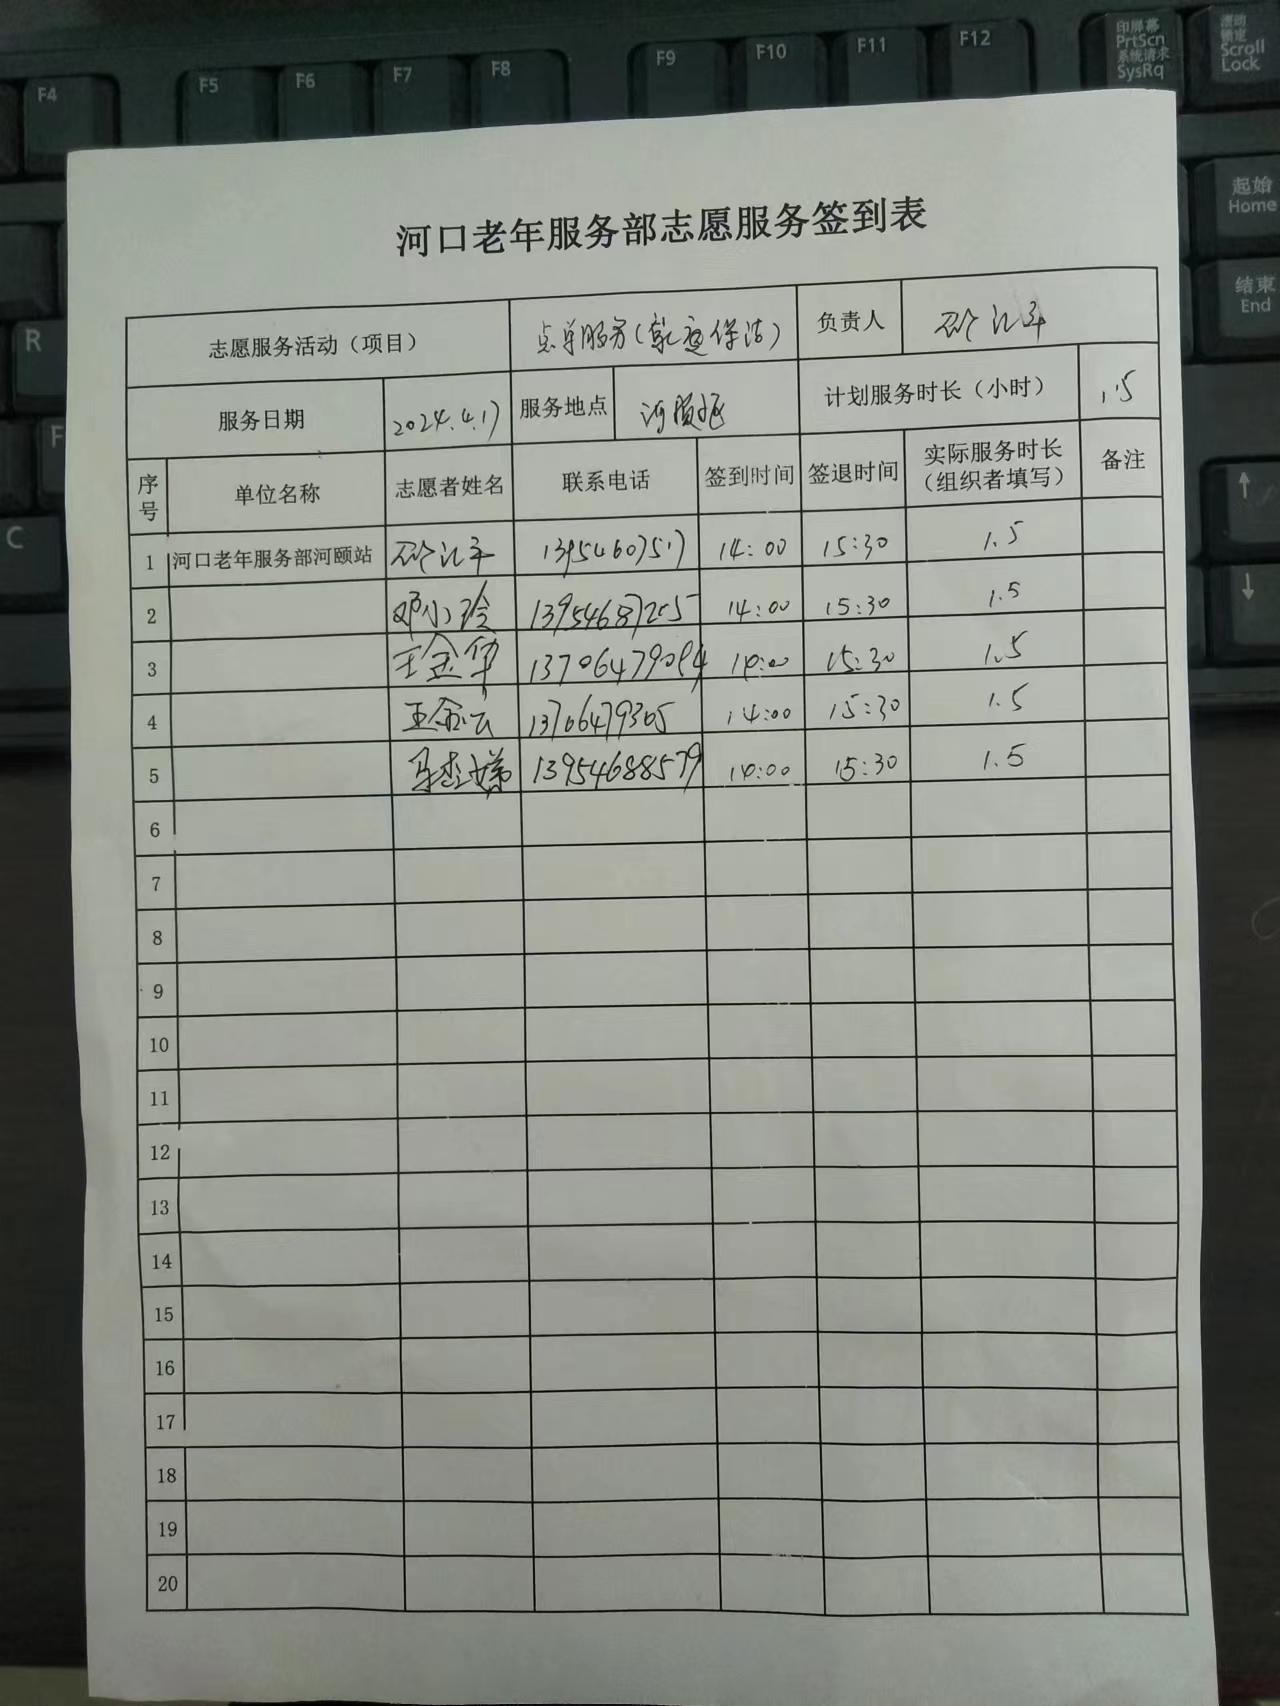 F4 F5 F6 F7 F8 F9 F10 F11 F12 印屏幕 PrtScn 系统请求 SysRq 滚动 锁定 Scroll Lock
起始 Home
结束 End
R
F
C
河口老年服务部志愿服务签到表
志愿服务活动（项目） 点单服务(家庭保洁) 负责人
服务日期 2024.4.17 服务地点 计划服务时长（小时） 1.5
序号 单位名称 志愿者姓名 联系电话 签到时间 签退时间 实际服务时长（组织者填写） 备注
1 河口老年服务部河颐站 13954607517 14:00 15:30 1.5
2 邓小玲 13954687255 14:00 15:30 1.5
3 王金华 13706479094 14:00 15:30 1.5
4 王金云 13706479305 14:00 15:30 1.5
5 13954688579 14:00 15:30 1.5
6
7
8
9
10
11
12
13
14
15
16
17
18
19
20